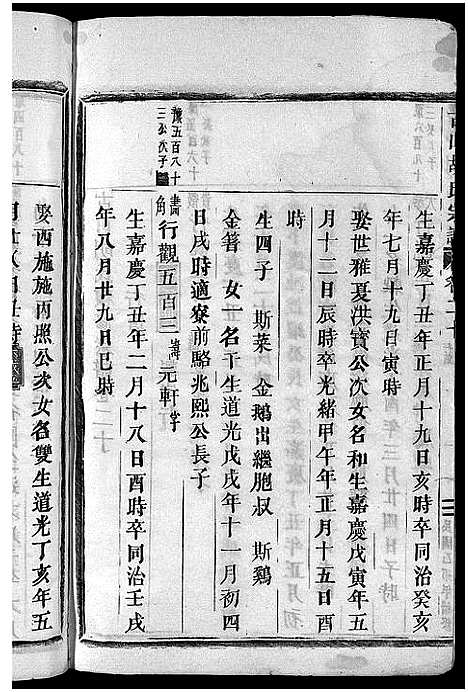 生嘉慶丁丑年正月十九日亥時卒同治癸亥
年七月十九日寅時
娶世雅夏洪寶公次女名和生嘉慶戊寅年五
月十二日辰時卒光緒甲午年正月十五日酉
時
生四子 斯萊 金鵝出繼胞叔 斯鷄
金簪 女一名干生道光戊戌年十一月初四
日戌時適寮前駱兆熙公長子
豫五百八十
三公次子
行觀五百三 元軒字
生嘉慶丁丑年二月十八日酉時卒同治壬戌
年八月廿九日巳時
娶西施施丙照公次女名雙生道光丁亥年五